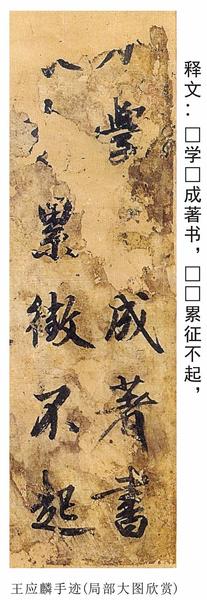 释文：□学□成著书，□□累征不起，
學成著書
累徵不起
王应麟手迹(局部大图欣赏)